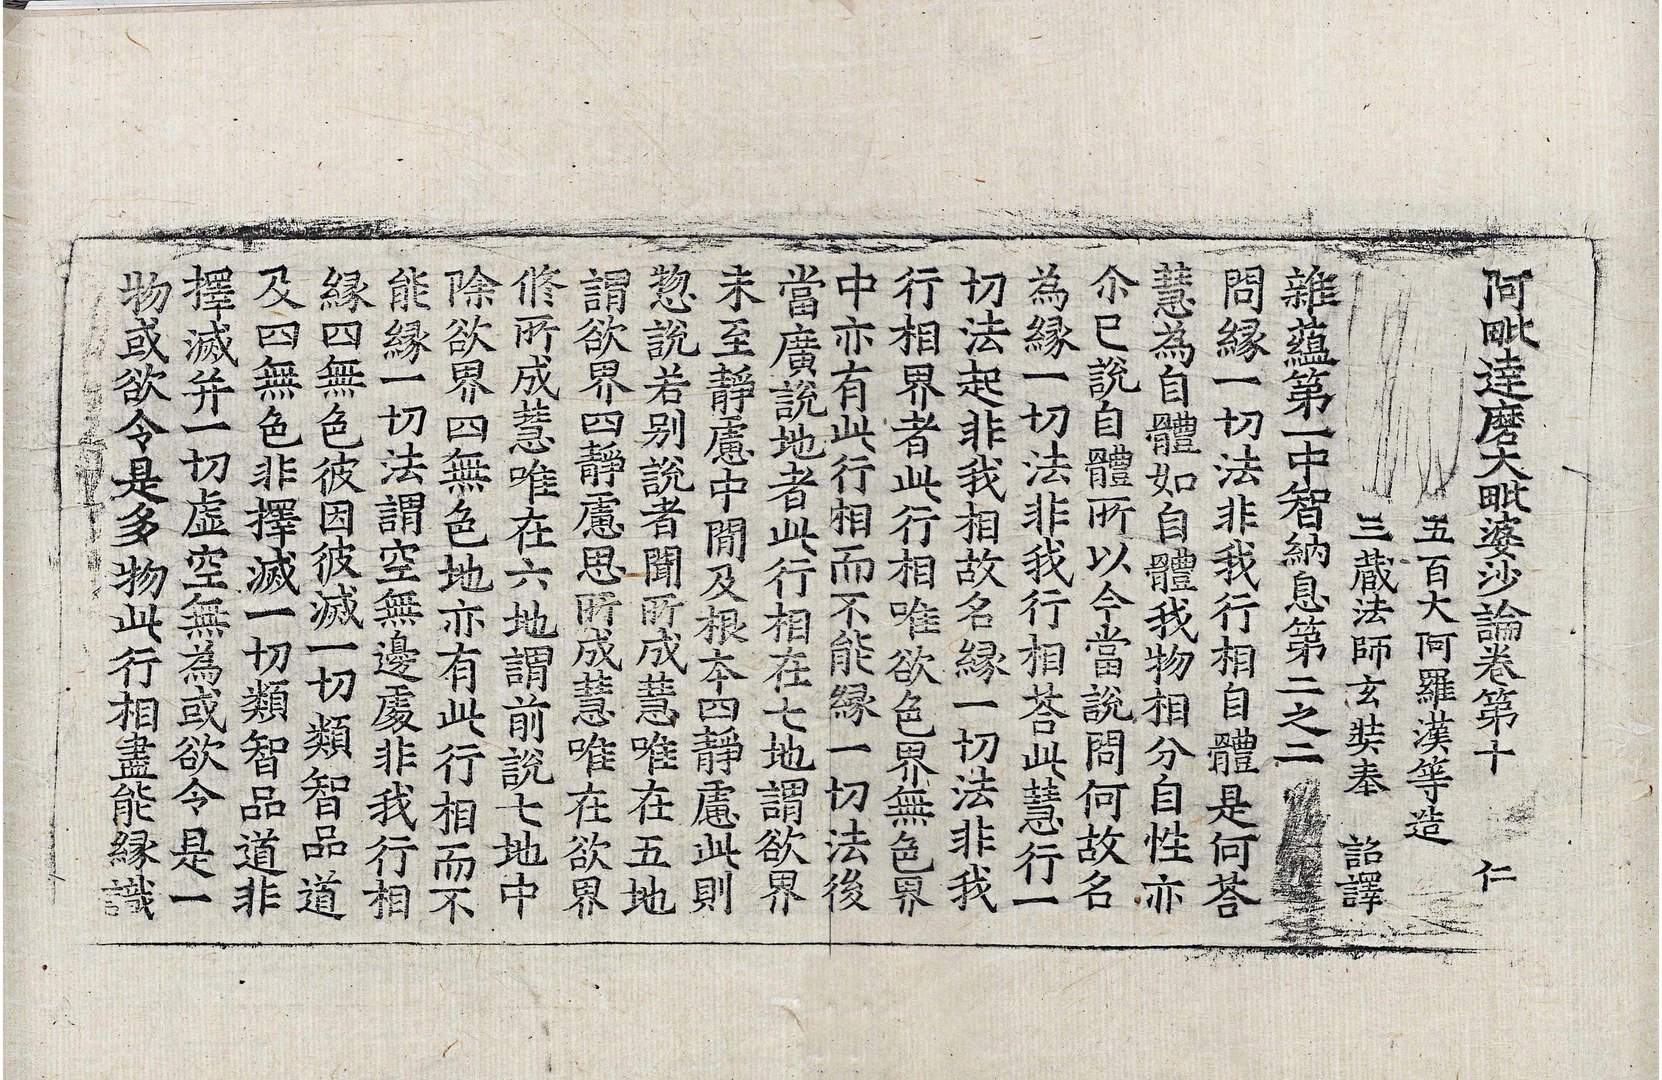 阿毗達磨大毗婆沙論卷第十　仁
五百大阿羅漢等造
三藏法師玄奘奉　詔譯
雜蘊第一中智納息第二之二
問緣一切法非我行相自體是何荅
慧為自體如自體我物相分自性亦
尒已說自體所以今當說問何故名
為緣一切法非我行相荅此慧行一
切法起非我相故名緣一切法非我
行相界者此行相唯欲色界無色界
中亦有此行相而不能緣一切法後
當廣說地者此行相在七地謂欲界
未至靜慮中間及根本四靜慮此則
惣說若别說者聞所成慧唯在五地
謂欲界四靜慮思所成慧唯在欲界
修所成慧唯在六地謂前說七地中
除欲界四無色地亦有此行相而不
能緣一切法謂空無邊處非我行相
緣四無色彼因彼滅一切類智品道
及四無色非擇滅一切類智品道非
擇滅并一切虛空無為或欲令是一
物或欲令是多物此行相盡能緣識